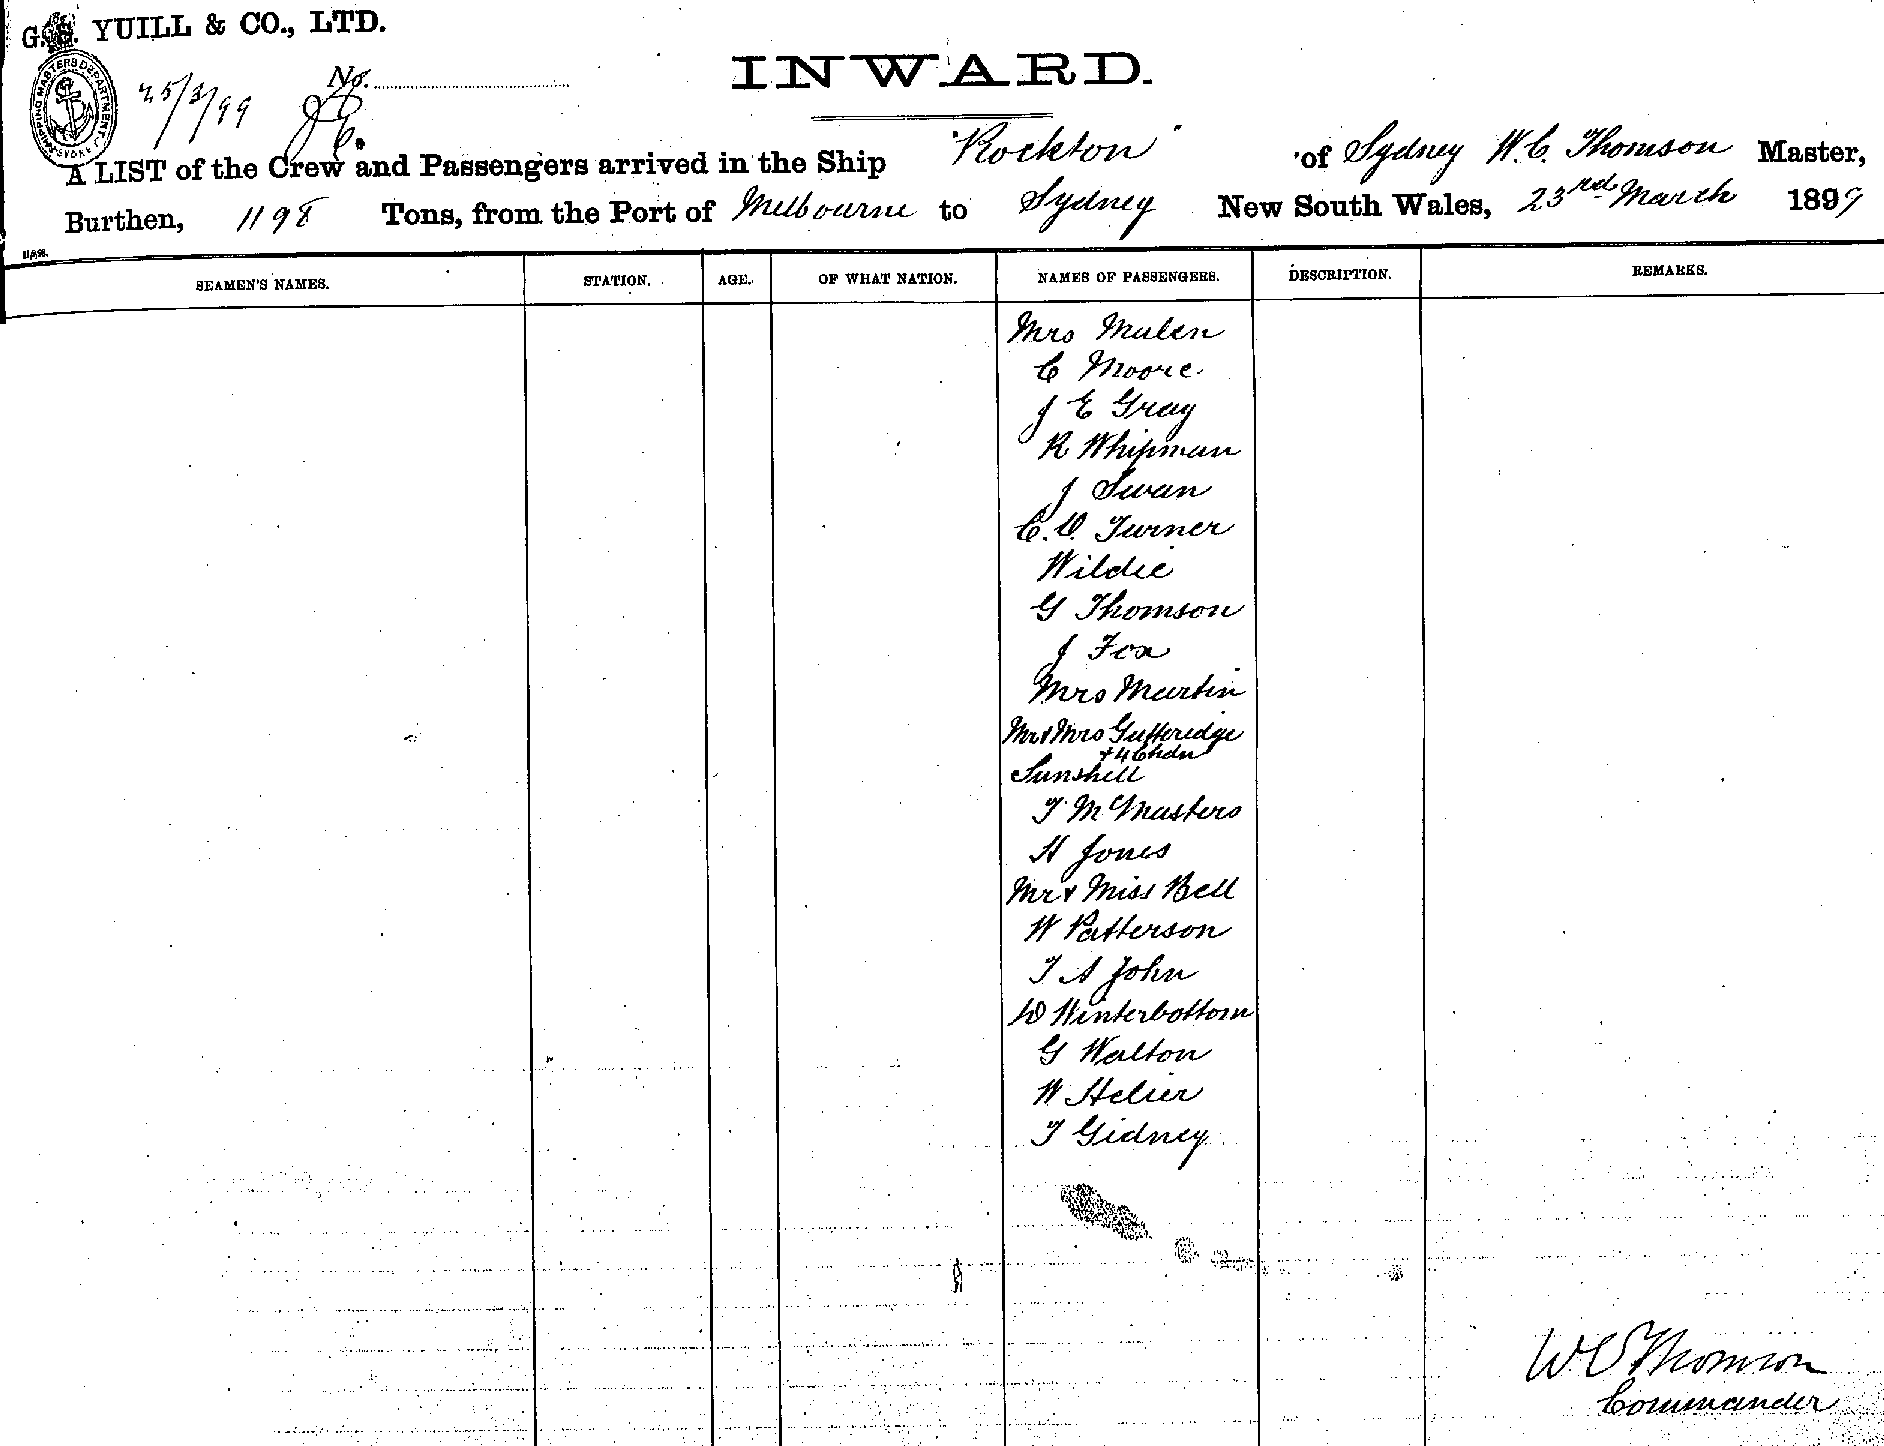 YUILL & CO., LTD.
No.
INWARD.
SHIPPING MASTERS DEPARTMENT
25/3/99
"Rockton"
A LIST of the Crew and Passengers arrived in the Ship of Sydney W. C. Thomson Master,
Burthen, 1198 Tons, from the Port of Melbourne to Sydney New South Wales, 23rd March 1899
SEAMEN'S NAMES. STATION. AGE. OF WHAT NATION. NAMES OF PASSENGERS. DESCRIPTION. REMARKS.
Mrs Mulen
C Moore
J E Gray
R Whipman
J Swan
C. V. Turner
Wildie
G Thomson
J Fox
Mrs Martin
Mr & Mrs Gutteridge
+ 4 Chdn
Sunshell
T McMasters
H Jones
Mr & Miss Bell
W Patterson
T A John
W Winterbottom
G Walton
W Helier
T Gidney
W C Thomson
Commander